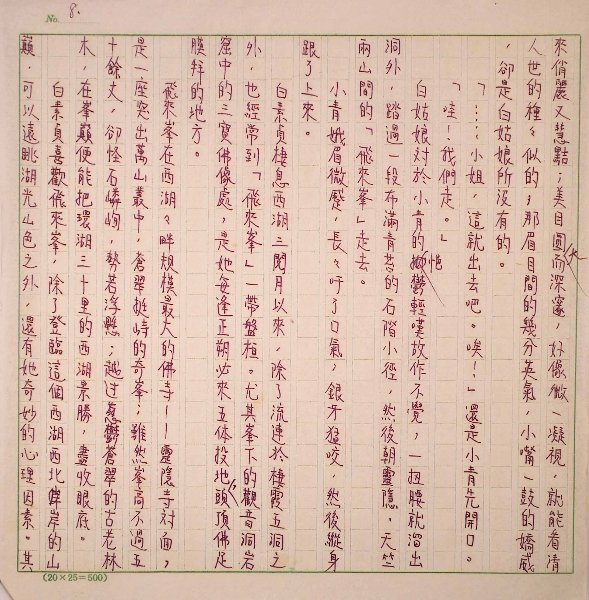 No. 8.
來俏麗又慧黠；美目圓大而深邃，好像微一凝視，就能看清
人世的種々似的；那眉目間的幾分英氣，小嘴一鼓的嬌威
，卻是白姑娘所沒有的。
「……小姐，這就出去吧。唉！」還是小青先開口。
「哇！我們走。」
白姑娘对於小青的悒鬱輕嘆故作不覺，一扭腰就溜出
洞外，踏過一段布滿青苔的石階小徑，然後朝靈隱、天竺
兩山間的「飛來峯」走去。
小青娥眉微蹙，長々吁了口氣，銀牙猛咬，然後縱身
跟了上來。
白素貞棲息西湖三閱月以來，除了流連於棲霞五洞之
外，也經常到「飛來峯」一帶盤桓。尤其峯下的觀音洞岩
窟中的三寶佛像處，是她每逢正朔必來五体投地，頭頂佛足
膜拜的地方。
飛來峯在西湖々畔規模最大的佛寺——靈隱寺対面，
是一座突出萬山叢中，蒼翠挺峙的奇峯；雖然峯高不過五
十餘丈，卻怪石嶙峋，勢若浮懸；越过蔥鬱蒼翠的古老林
木，在峯巔便能把環湖三十里的西湖景勝，盡收眼底。
白素貞喜歡飛來峯，除了登臨這個西湖西北岸的山
巔，可以遠眺湖光山色之外，還有她奇妙的心理因素。其
(20×25=500)